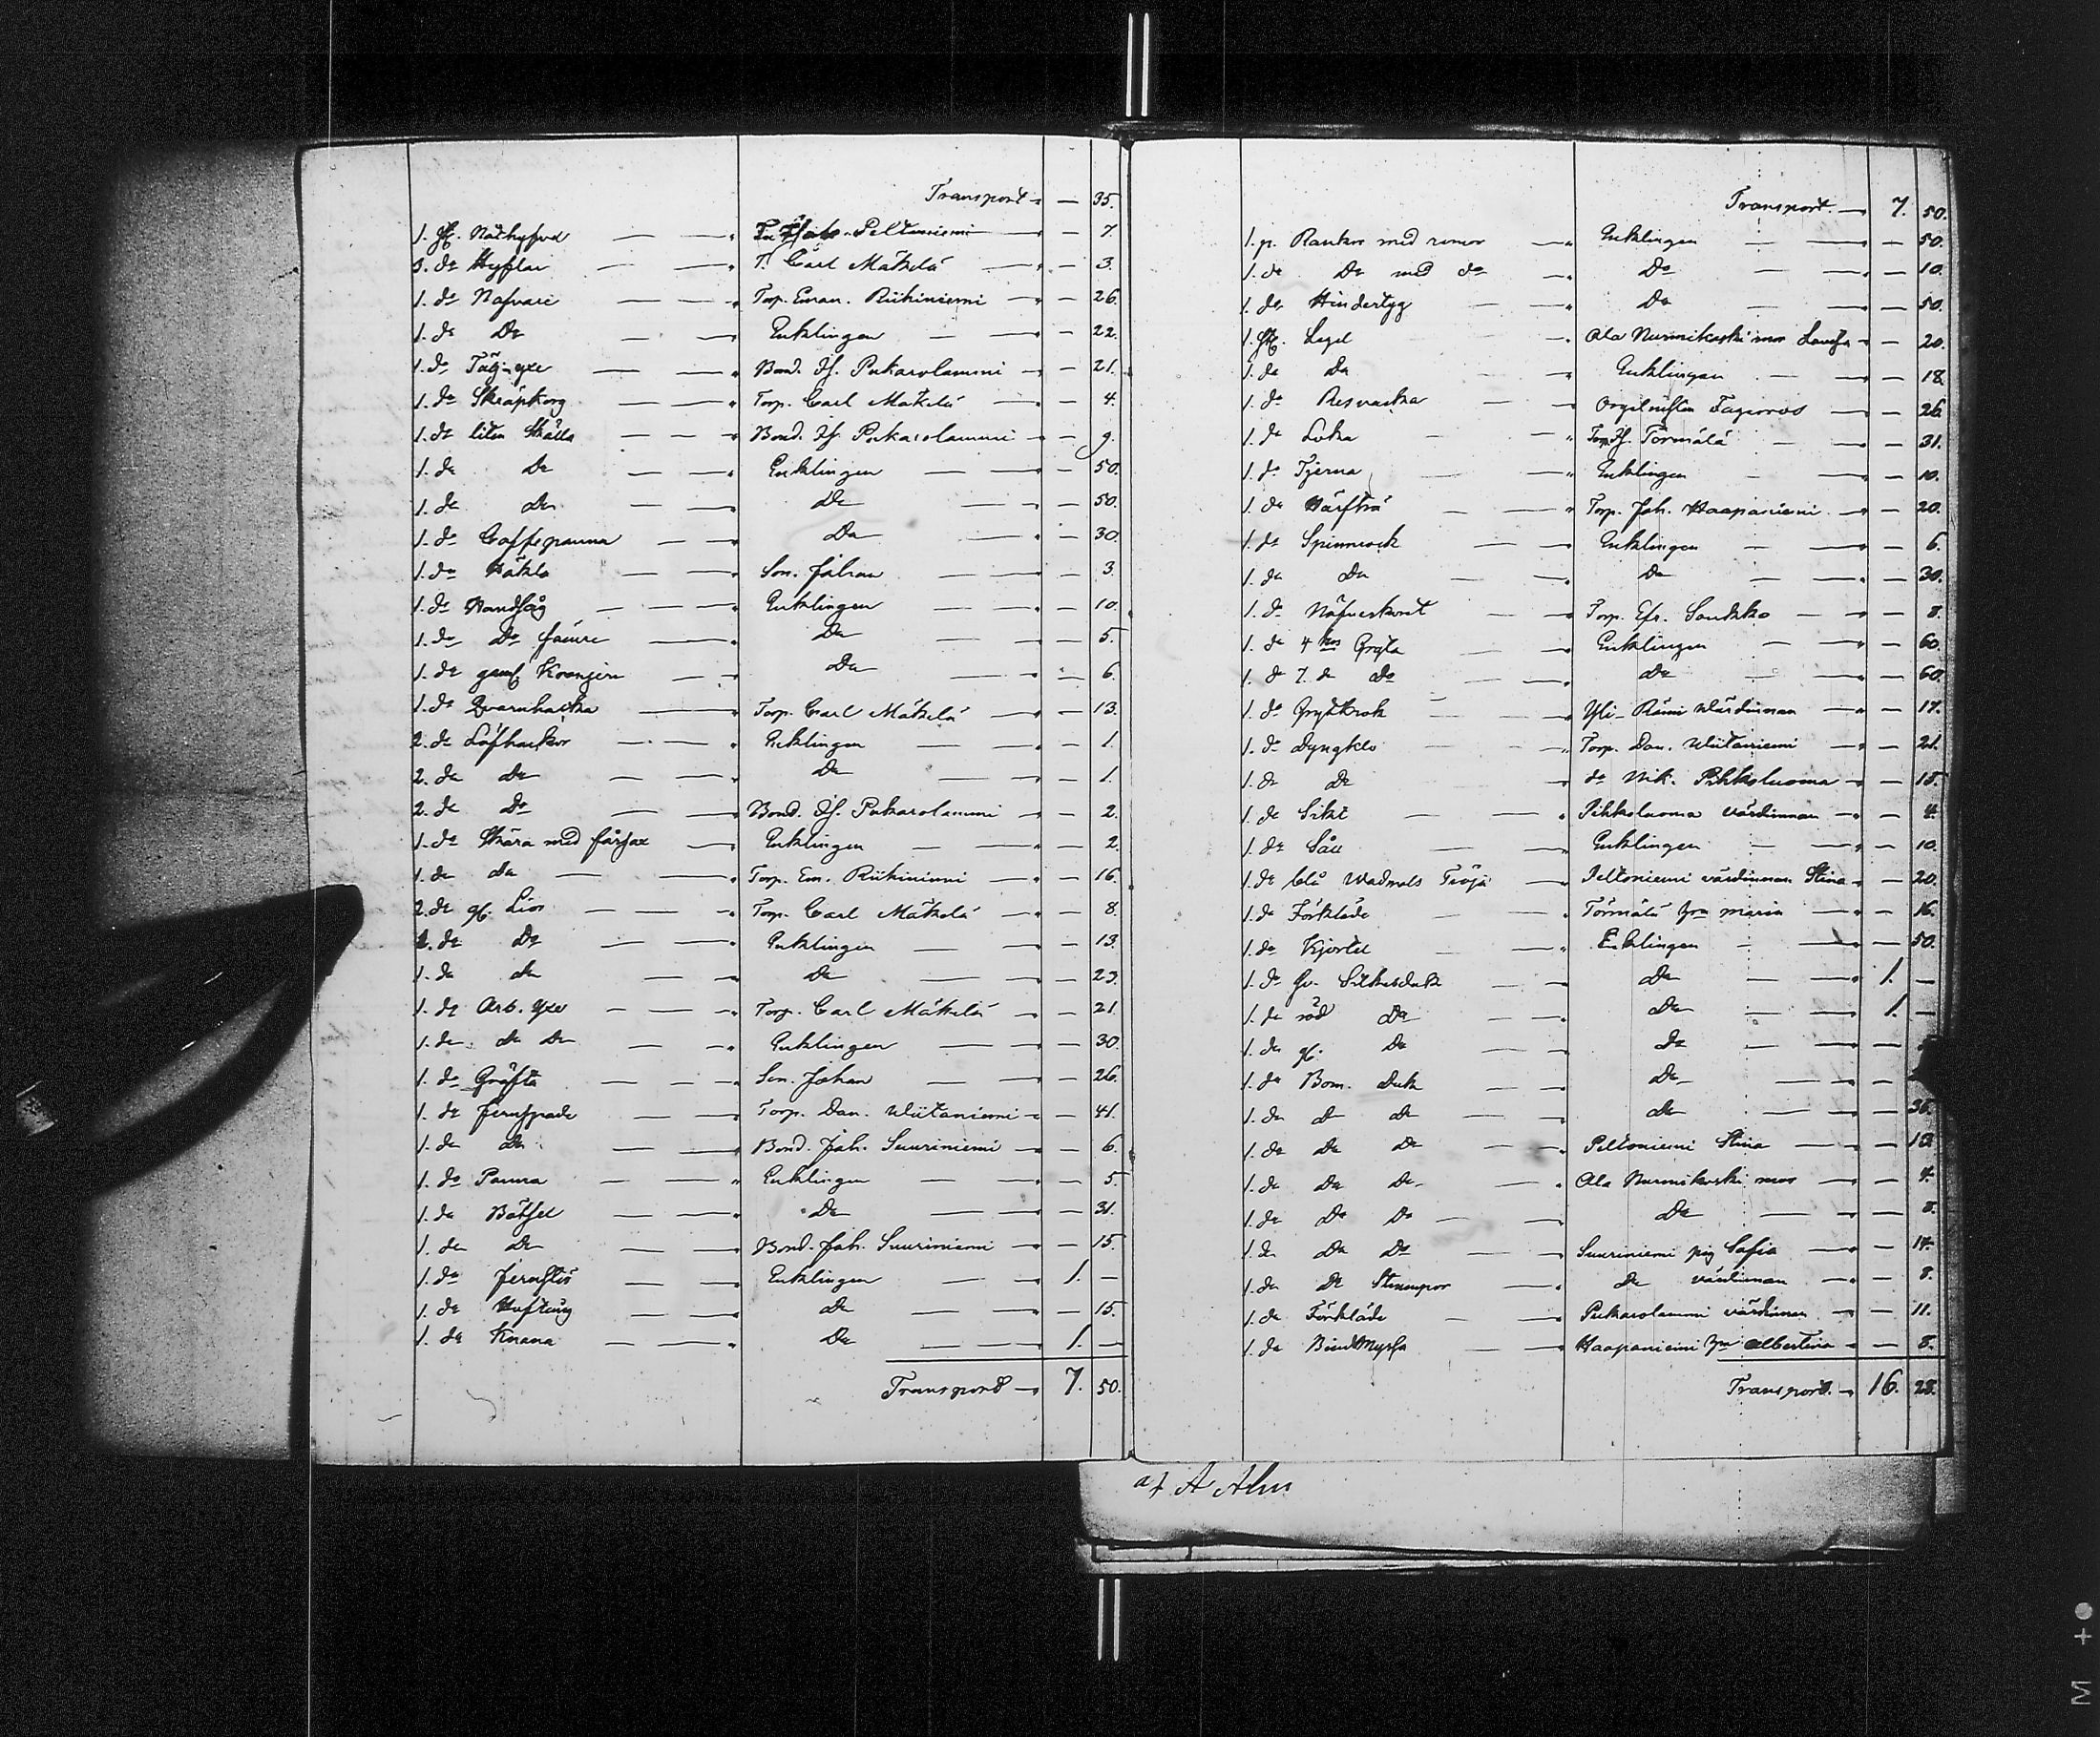 Transport — — 35.
1. st. Nöthufvud — — Tp Joh. Peltoniemi — — 7.
3. do Hyflar — — T. Carl Mäkelä — — 3.
1. do Nafvare — — Torp. Eman. Riikiniemi — — 26.
1. do Do — — Enklingen — — 22.
1. do Täljyxe — — Bond. Is. Pukarolammi — — 21.
1. do Skräpkorg — — Torp. Carl Mäkelä — — 4.
1. do liten Skälla — — Bond. Is. Pukarolammi — — 9.
1. do Do — — Enklingen — — 50.
1. do Do — — Do — — 50.
1. do Caffepanna — — Do — — 30.
1. do Häkla — — Son. Johan — — 3.
1. do Handsåg — — Enklingen — — 10.
1. do Do sämre — — Do — — 5.
1. do gaml. — — Do — — 6.
1. do Qvarnhacka — — Torp. Carl Mäkelä — — 13.
2. do Löfhackor — — Enklingen — — 1.
2. do Do — — Do — — 1.
2. do Do — — Bond. Is. Pukarolammi — — 2.
1. do Skära med fårsax — Enklingen — — 2.
1. do do — — Torp. Em. Riikiniemi — — 16.
2. do gl. Liar — — Torp. Carl Mäkelä — — 8.
1. do Do — — Enklingen — — 13.
1. do do — — Do — — 23.
1. do Arb. yxe — — Torp. Carl Mäkelä — — 21.
1. do do Do — — Enklingen — — 30.
1. do Gräfta — — Son. Johan — — 26.
1. do Jernspade — — Torp. Dan. Wiitaniemi — — 41.
1. do do — — Bond. Joh. Suuriniemi — — 6.
1. do Panna — — Enklingen — — 5.
1. do Bötsel — — Do — — 31.
1. do Do — — Bond. Joh. Suuriniemi — — 15.
1. do Jernstör — — Enklingen — 1. —
1. do Hoftång — — do — — 15.
1. do Knana — — Do — 1. —
Transport — 7. 50.
Transport. — 7. 50.
1. p. Rankor med remor — Enklingen — — 50.
1. do Do med do — Do — — 10.
1. do Hindertyg — — Do — — 50.
1. st. Legel — Ala Nurmikoski mor Lovisa — — 20.
1. do Do — Enklingen — — 18.
1. do Resvacka — — Orgelnisten Fagerroos — — 26.
1. do Loka — — Torp. Is. Törmälä — — 31.
1. do Tjerna — — Enklingen — — 10.
1. do Härfträ — — Torp. Joh. Haapaniemi — — 20.
1. do Spinnrock — — Enklingen — — 6.
1. do Do — — Do — — 30.
1. do Näfverkont — — Torp. Efr. Soukko — — 8.
1. do 4 kns Gryta — — Enklingen — — 60.
1. do 7. do Do — — Do — — 60.
1. do Grytkrok — — Yli-Rämi wärdinnan — — 17.
1. do Dyngklo — — Torp. Dan. Wiitaniemi — — 21.
1. do Do — do Nik. Pihkoluoma — — 15.
1. do Sikt — — Pihkoluoma värdinnan — — 4.
1. do Såll — — Enklingen — — 10.
1. do blå Wadmals Tröja — Peltoniemi värdinnan Stina — — 20.
1. do Förkläde — — Törmälä Maria — — 16.
1. do Kjortel — — Enklingen — — 50.
1. do Silkesduk — — Do — 1. —
1. do röd Do — — Do — 1. —
1. do gl. Do — — do —
1. do Bom. duk — — Do —
1. do do do — — do — — 35.
1. do Do Do — — Peltoniemi Stina — — 12.
1. do Do Do — — Ala Nurmikoski mor — — 4.
1. do Do Do — — Do — — 8.
1. do Do Do — — Suuriniemi pig Sofia — — 14.
1. do Do — — do värdinnan — — 8.
1. do Förkläde — — Pukarolammi värdinnan — — 11.
1. do Bindmyssa — — Haapaniemi Albertina — — 8.
Transport. — 16. 28.
af A Alm
M + ●